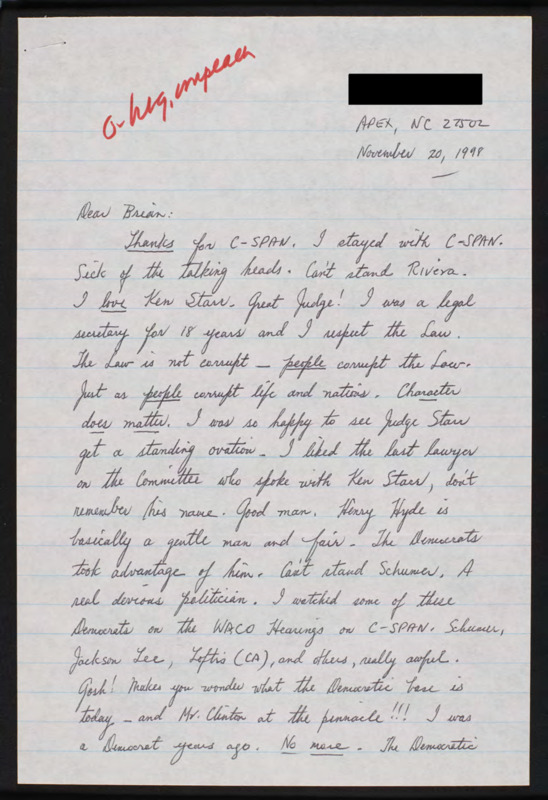 O- hrg, impeach
APEX, NC 27502
November 20, 1998
Dear Brian:
Thanks for C-SPAN. I stayed with C-SPAN.
Sick of the talking heads. Can't stand Rivera.
I love Ken Starr. Great Judge! I was a legal
secretary for 18 years and I respect the Law.
The Law is not corrupt — people corrupt the Law.
Just as people corrupt life and nations. Character
does matter. I was so happy to see Judge Starr
get a standing ovation. I liked the last lawyer
on the Committee who spoke with Ken Starr, don't
remember his name. Good man. Henry Hyde is
basically a gentle man and fair. The Democrats
took advantage of him. Can't stand Schumer. A
real devious politician. I watched some of these
Democrats on the WACO Hearings on C-SPAN. Schumer,
Jackson Lee, Loftis (CA), and others, really awful.
Gosh! Makes you wonder what the Democratic base is
today — and Mr. Clinton at the pinnacle!!! I was
a Democrat years ago. No more. The Democratic